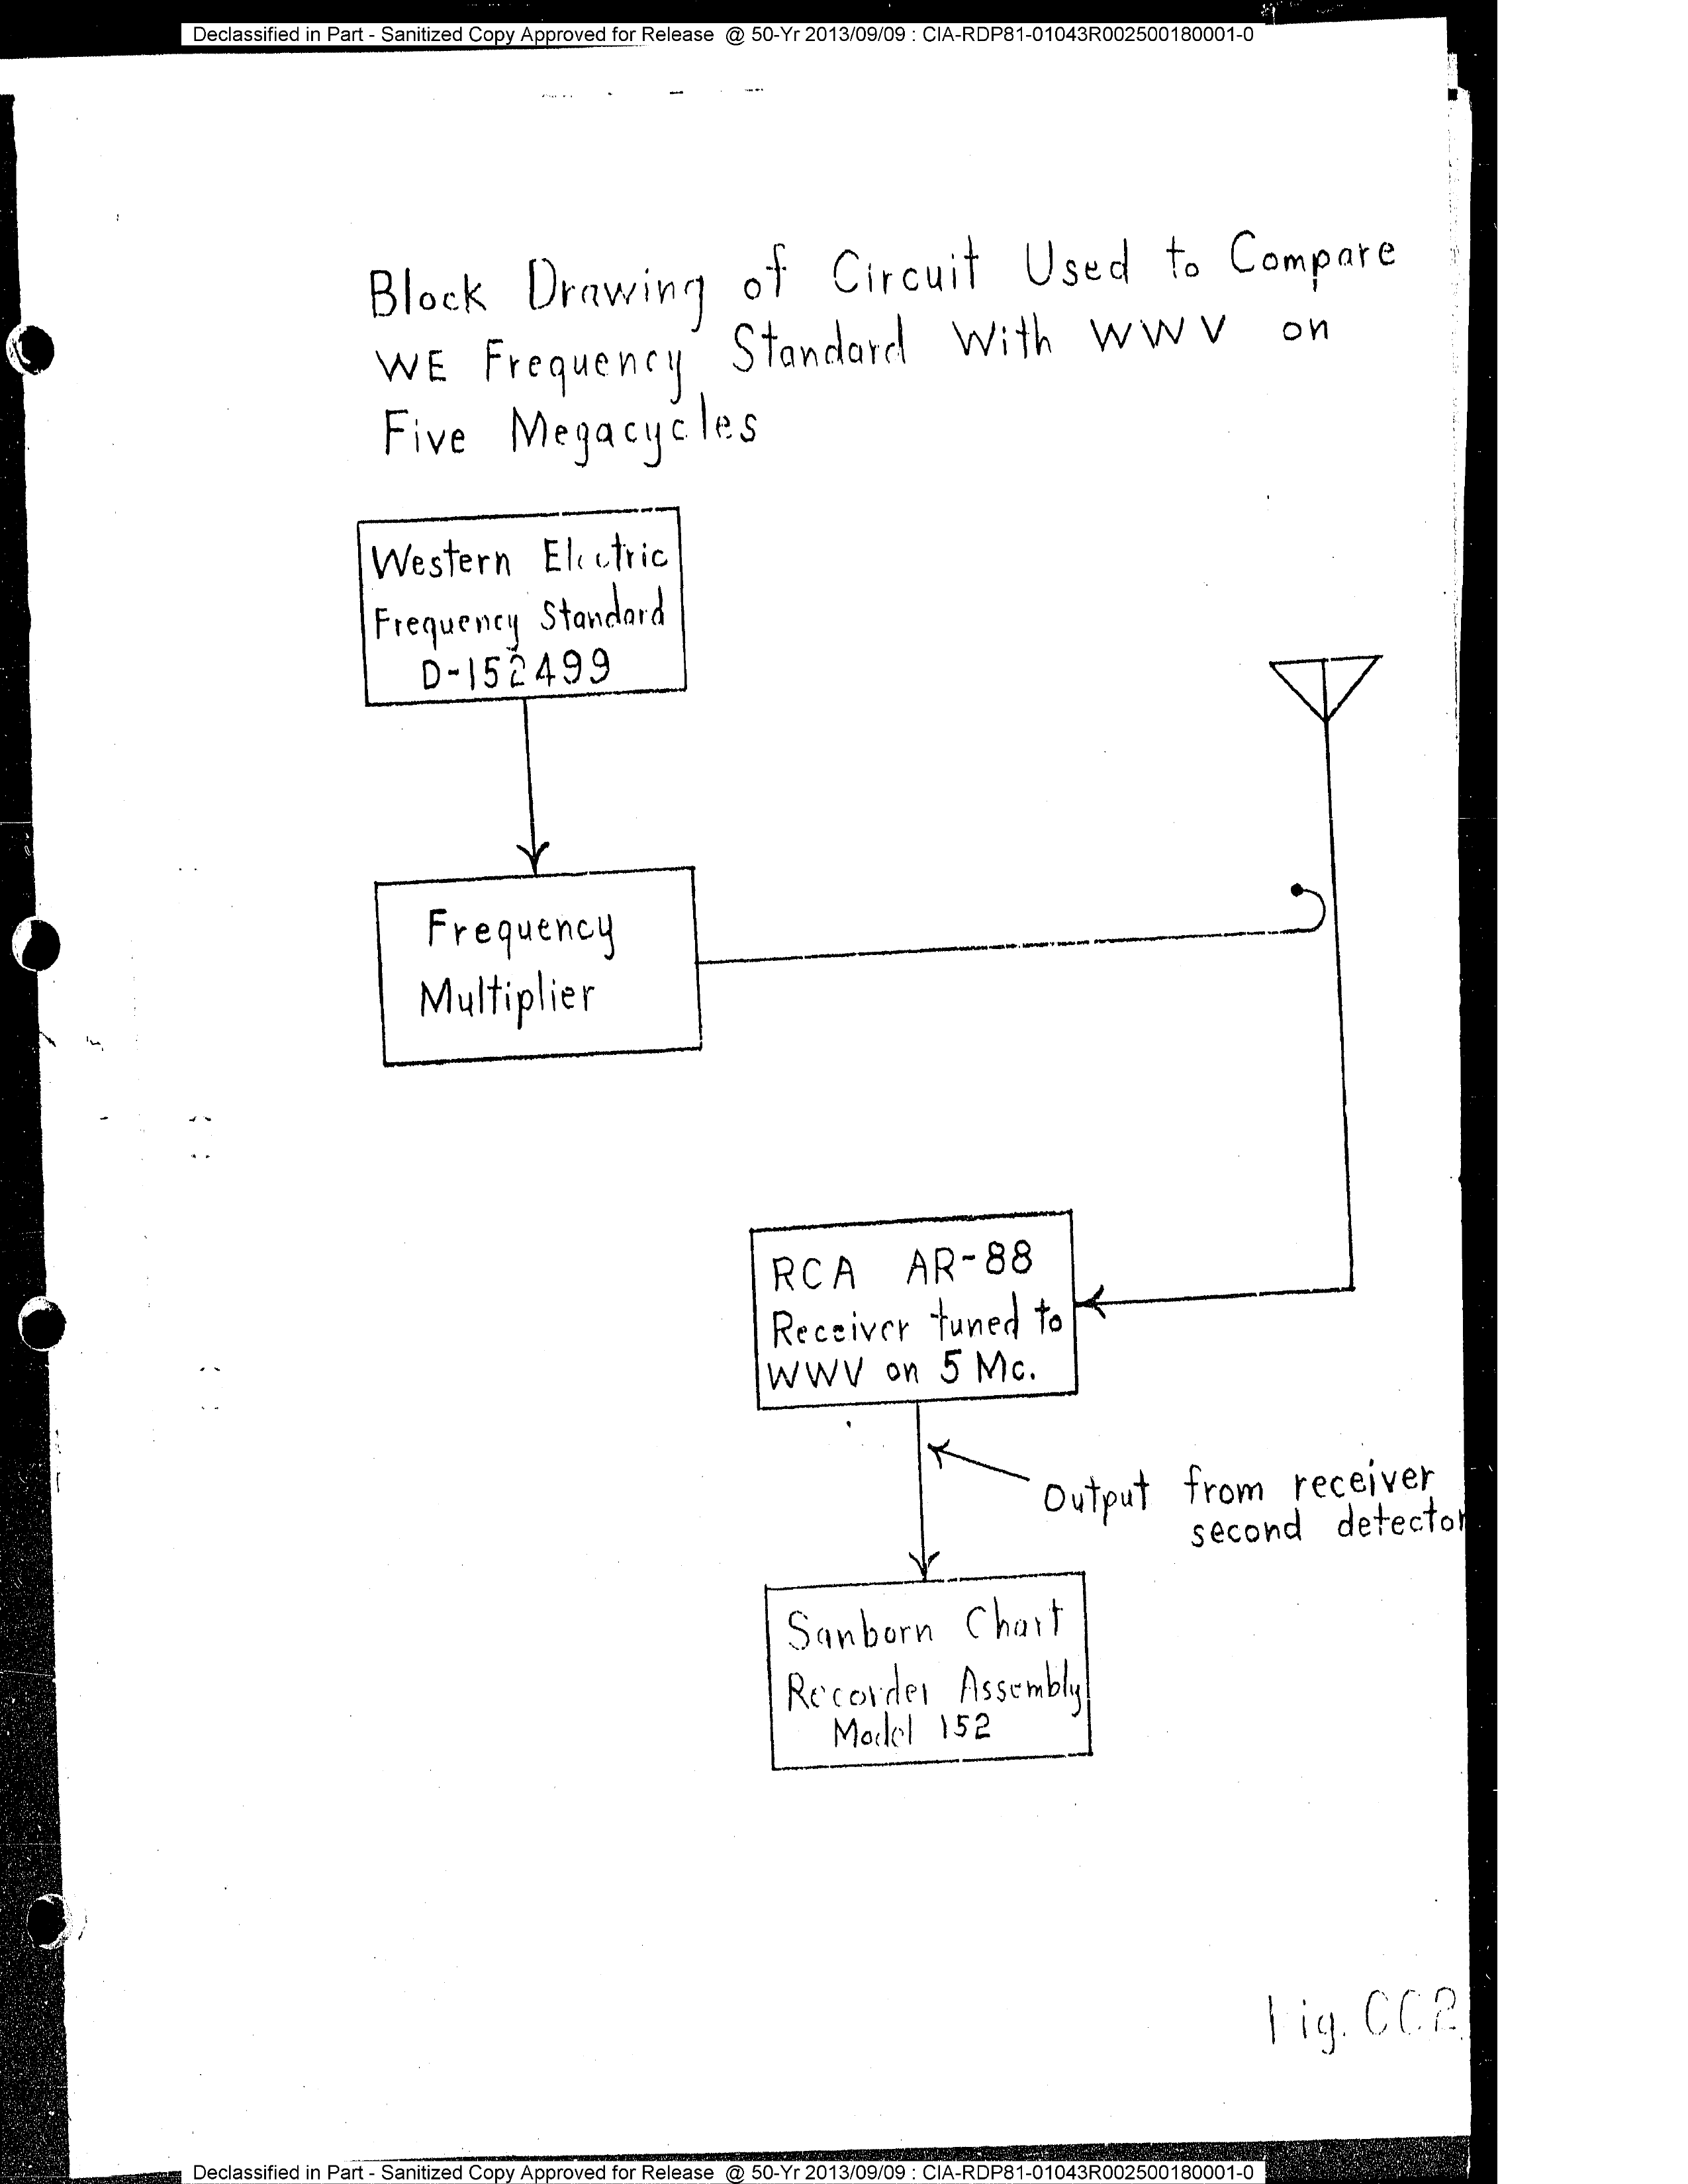 Declassified in Part - Sanitized Copy Approved for Release @ 50-Yr 2013/09/09 : CIA-RDP81-01043R002500180001-0
Block Drawing of Circuit Used to Compare
WE Frequency Standard With WWV on
Five Megacycles
Western Electric
Frequency Standard
D-152499
Frequency
Multiplier
RCA AR-88
Receiver tuned to
WWV on 5 Mc.
Output from receiver
second detector
Sanborn Chart
Recorder Assembly
Model 152
Fig. CC2
Declassified in Part - Sanitized Copy Approved for Release @ 50-Yr 2013/09/09 : CIA-RDP81-01043R002500180001-0